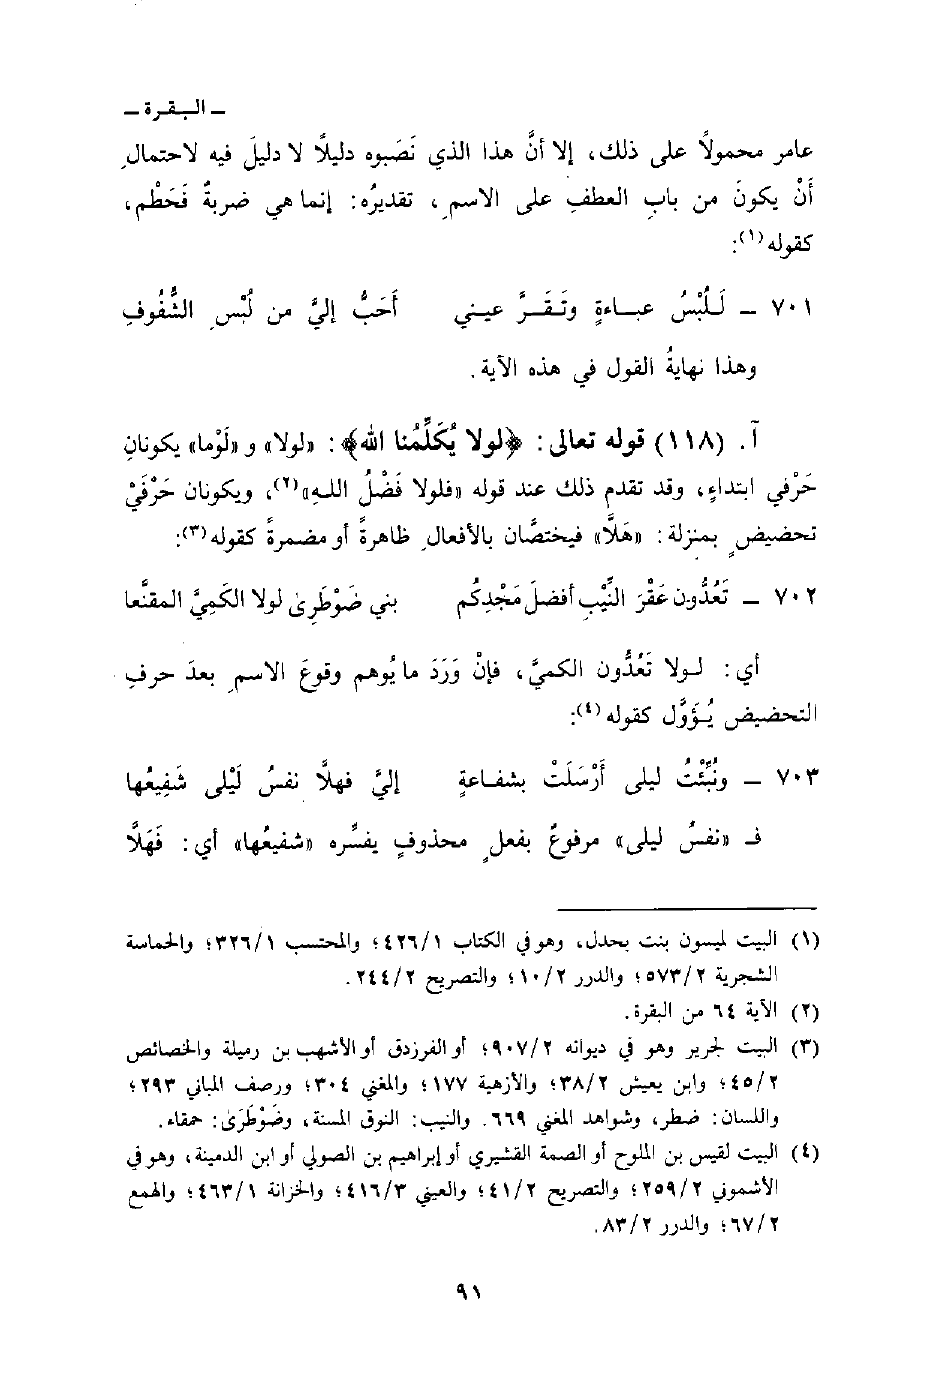 ـ البقرة ـ
عامر محمولاً على ذلك، إلا أنَّ هذا الذي نَصَبوه دليلاً لا دليلَ فيه لاحتمالِ
أَنْ يكونَ من بابِ العطفِ على الاسمِ، تقديرُه: إنما هي ضربةٌ فَحَطْم،
كقوله(١):
٧٠١ ـ لَلُبْسُ عباءةٍ وتَقَرَّ عيني    أَحَبُّ إليَّ من لُبْسِ الشُّفُوفِ
وهذا نهايةُ القول في هذه الآية.
آ. (١١٨) قوله تعالى: ﴿لولا يُكَلِّمُنا الله﴾: «لولا» و «لَوْما» يكونانِ
حَرْفي ابتداءٍ، وقد تقدم ذلك عند قوله «فلولا فَضْلُ اللهِ»(٢)، ويكونان حَرْفَيْ
تحضيضٍ بمنزلة: «هَلَّا» فيختصَّان بالأفعالِ ظاهرةً أو مضمرةً كقوله(٣):
٧٠٢ ـ تَعُدُّون عَقْرَ النِّيْبِ أفضلَ مَجْدِكُم    بني ضَوْطَرىٰ لولا الكَمِيَّ المقنَّعا
أي: لولا تَعُدُّون الكميَّ، فإنْ وَرَدَ ما يُوهم وقوعَ الاسمِ بعدَ حرفِ
التحضيض يُؤَوَّل كقوله(٤):
٧٠٣ ـ ونُبِّئْتُ ليلى أَرْسَلَتْ بشفاعةٍ    إليَّ فهلاَّ نفسُ لَيْلى شَفِيعُها
فـ «نفسُ ليلى» مرفوعٌ بفعلٍ محذوفٍ يفسِّره «شفيعُها» أي: فَهَلاَّ
(١) البيت لميسون بنت بحدل، وهو في الكتاب ٤٢٦/١؛ والمحتسب ٣٢٦/١؛ والحماسة
الشجرية ٥٧٣/٢؛ والدرر ١٠/٢؛ والتصريح ٢٤٤/٢.
(٢) الآية ٦٤ من البقرة.
(٣) البيت لجرير وهو في ديوانه ٩٠٧/٢؛ أو الفرزدق أو الأشهب بن رميلة والخصائص
٤٥/٢؛ وابن يعيش ٣٨/٢؛ والأزهية ١٧٧؛ والمغني ٣٠٤؛ ورصف المباني ٢٩٣؛
واللسان: ضطر، وشواهد المغني ٦٦٩. والنيب: النوق المسنة، وضَوْطَرَىٰ: حمقاء.
(٤) البيت لقيس بن الملوح أو الصمة القشيري أو إبراهيم بن الصولي أو ابن الدمينة، وهو في
الأشموني ٢٥٩/٢؛ والتصريح ٤١/٢؛ والعيني ٤١٦/٣؛ والخزانة ٤٦٣/١؛ والهمع
٦٧/٢؛ والدرر ٨٣/٢.
٩١